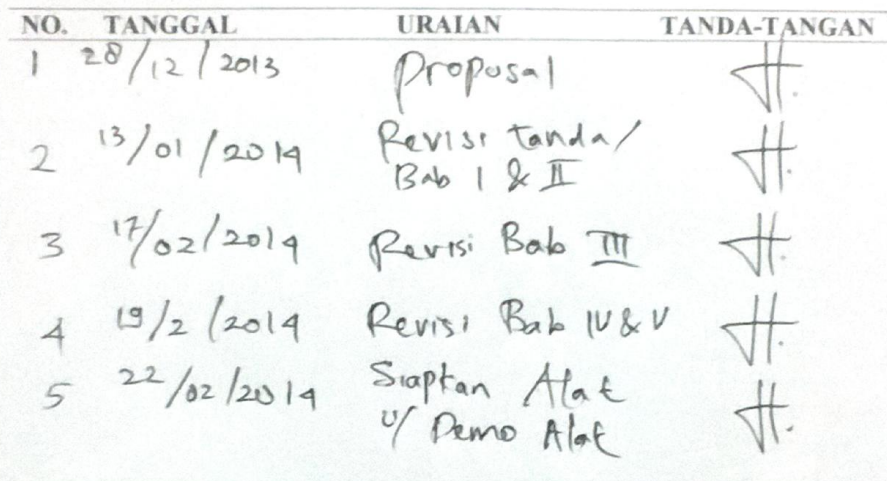 NO. TANGGAL URAIAN TANDA-TANGAN
1 28/12/2013 Proposal
2 13/01/2014 Revisi tanda/
Bab I & II
3 17/02/2014 Revisi Bab III
4 19/2/2014 Revisi Bab IV & V
5 22/02/2014 Siapkan Alat
u/ Demo Alat